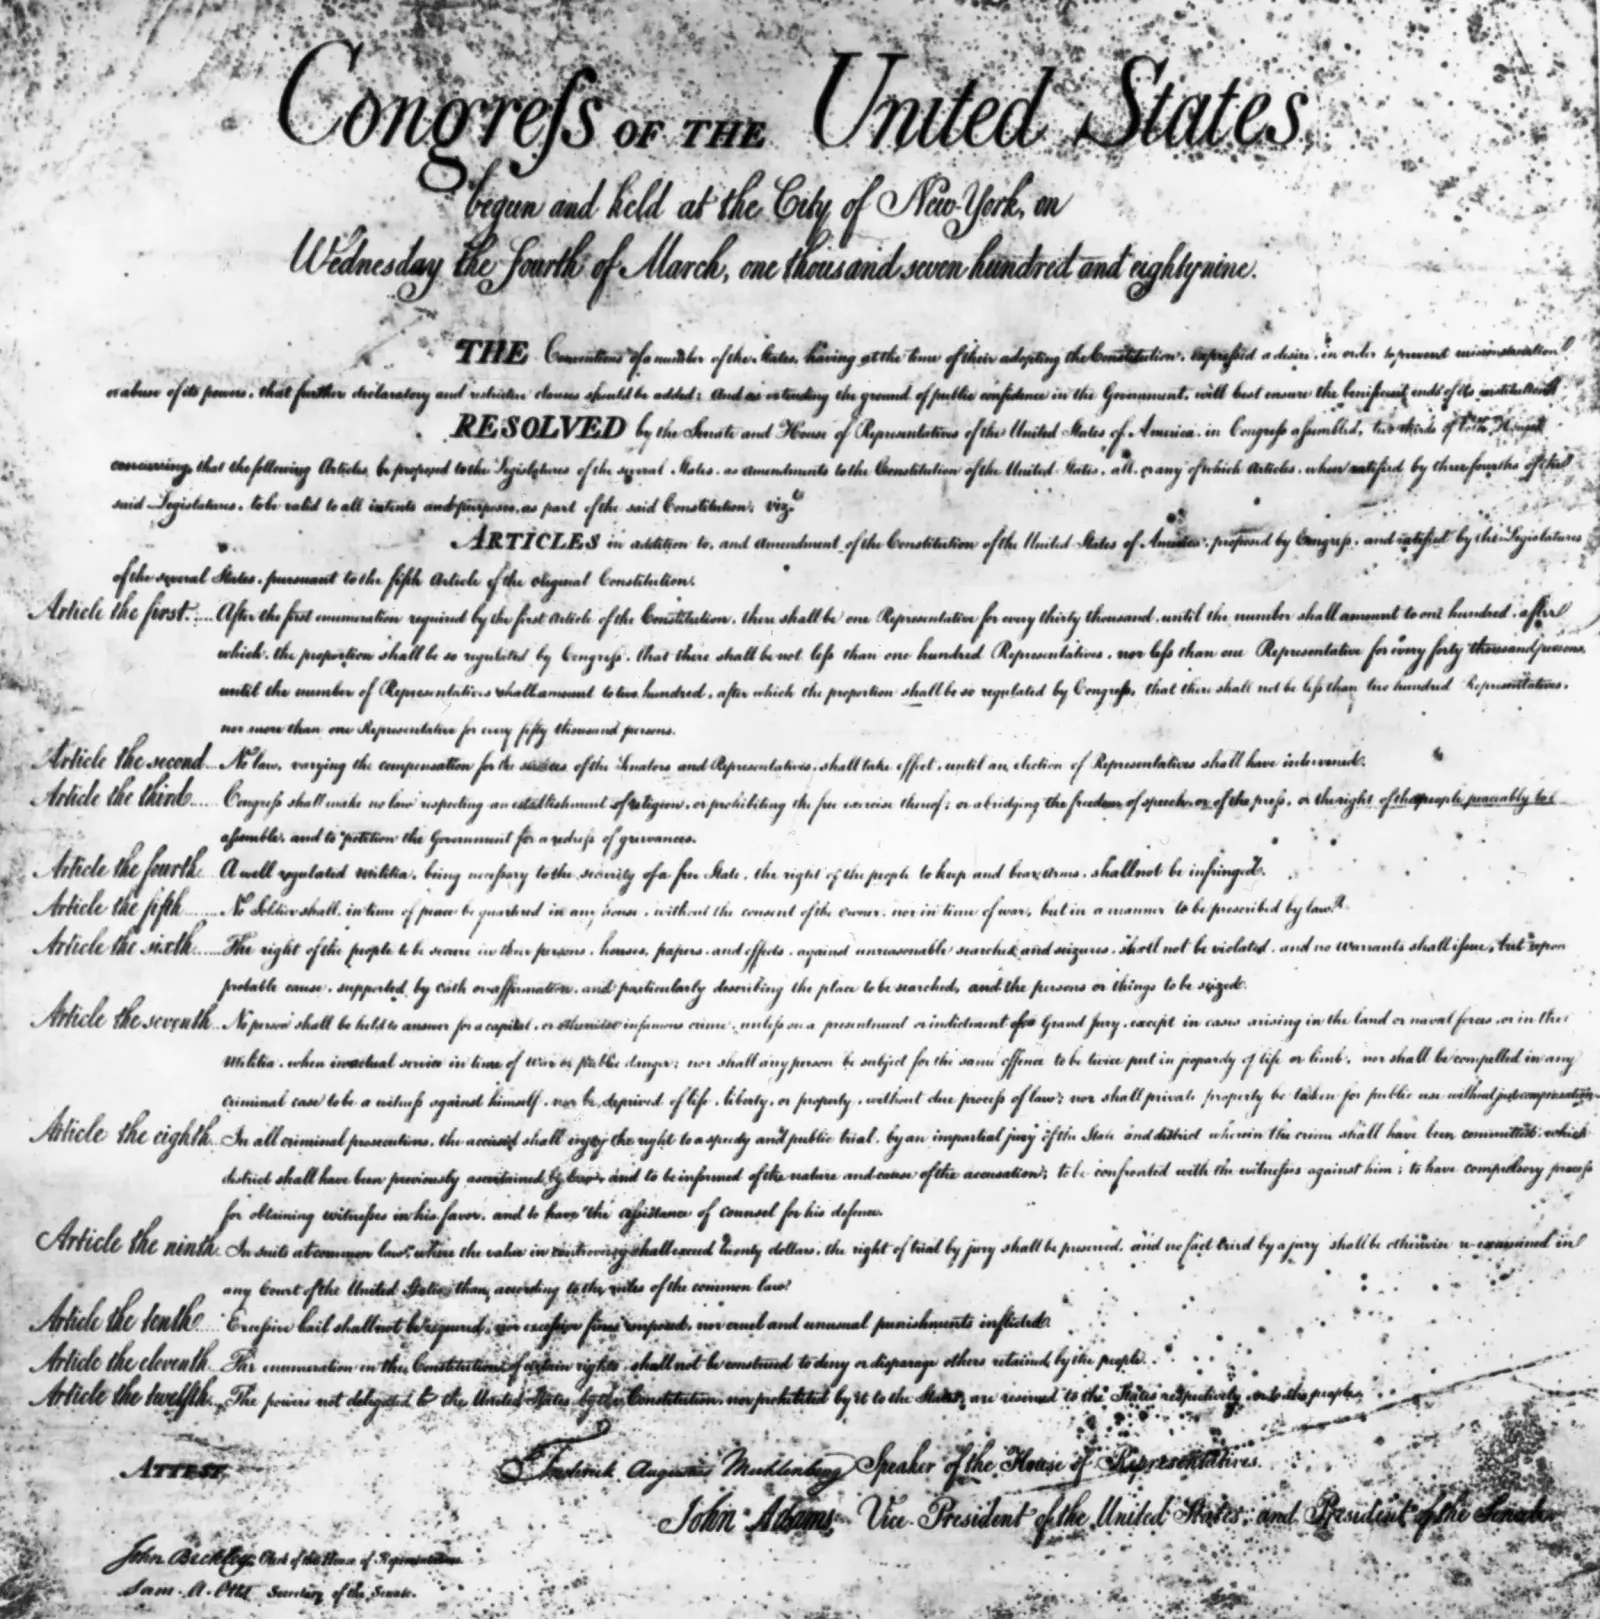 Congreſs OF THE United States
begun and held at the City of New-York, on
Wednesday the fourth of March, one thousand seven hundred and eighty nine.
THE Conventions of a number of the States, having at the time of their adopting the Constitution, expreſsed a desire, in order to prevent misconstruction
or abuse of its powers, that further declaratory and restrictive clauses should be added: And as extending the ground of public confidence in the Government, will best ensure the beneficent ends of its institution
RESOLVED by the Senate and House of Representatives of the United States of America, in Congreſs aſsembled, two thirds of both Houses
concurring, that the following Articles be proposed to the Legislatures of the several States, as amendments to the Constitution of the United States, all or any of which Articles, when ratified by three fourths of the
said Legislatures, to be valid to all intents and purposes, as part of the said Constitution; viz.t
ARTICLES in addition to, and amendment of the Constitution of the United States of America, proposed by Congreſs, and ratified by the Legislatures
of the several States, pursuant to the fifth Article of the original Constitution.
Article the first..... After the first enumeration required by the first Article of the Constitution, there shall be one Representative for every thirty thousand, until the number shall amount to one hundred, after
which, the proportion shall be so regulated by Congreſs, that there shall be not leſs than one hundred Representatives, nor leſs than one Representative for every forty thousand persons,
until the number of Representatives shall amount to two hundred, after which the proportion shall be so regulated by Congreſs, that there shall not be leſs than two hundred Representatives,
nor more than one Representative for every fifty thousand persons.
Article the second... No law, varying the compensation for the services of the Senators and Representatives, shall take effect, until an election of Representatives shall have intervened.
Article the third..... Congreſs shall make no law respecting an establishment of religion, or prohibiting the free exercise thereof; or abridging the freedom of speech, or of the preſs, or the right of the people peaceably to
aſsemble, and to petition the Government for a redreſs of grievances.
Article the fourth.. A well regulated militia, being neceſsary to the security of a free State, the right of the people to keep and bear arms, shall not be infringed.
Article the fifth ...... No Soldier shall, in time of peace be quartered in any house, without the consent of the owner, nor in time of war, but in a manner to be prescribed by law.
Article the sixth...... The right of the people to be secure in their persons, houses, papers, and effects, against unreasonable searches and seizures, shall not be violated, and no warrants shall iſsue, but upon
probable cause, supported by oath or affirmation, and particularly describing the place to be searched, and the persons or things to be seized.
Article the seventh.. No person shall be held to answer for a capital, or otherwise infamous crime, unleſs on a presentment or indictment of a Grand Jury, except in cases arising in the land or naval forces, or in the
Militia, when in actual service in time of War or public danger; nor shall any person be subject for the same offence to be twice put in jeopardy of life or limb, nor shall be compelled in any
criminal case to be a witneſs against himself, nor be deprived of life, liberty, or property, without due proceſs of law; nor shall private property be taken for public use without just compensation.
Article the eighth.. In all criminal prosecutions, the accused shall enjoy the right to a speedy and public trial, by an impartial jury of the State and district wherein the crime shall have been committed, which
district shall have been previously ascertained by law, and to be informed of the nature and cause of the accusation; to be confronted with the witneſses against him; to have compulsory proceſs
for obtaining witneſses in his favor, and to have the aſsistance of counsel for his defence.
Article the ninth.. In suits at common law, where the value in controversy shall exceed twenty dollars, the right of trial by jury shall be preserved, and no fact tried by a jury shall be otherwise re-examined in
any Court of the United States, than according to the rules of the common law.
Article the tenth... Exceſsive bail shall not be required, nor exceſsive fines imposed, nor cruel and unusual punishments inflicted.
Article the eleventh.. The enumeration in the Constitution, of certain rights, shall not be construed to deny or disparage others retained by the people.
Article the twelfth.. The powers not delegated to the United States by the Constitution, nor prohibited by it to the States, are reserved to the States respectively, or to the people.
ATTEST,
Frederick Augustus Muhlenberg Speaker of the House of Representatives.
John Adams, Vice-President of the United States, and President of the Senate.
John Beckley, Clerk of the House of Representatives.
Sam. A. Otis Secretary of the Senate.